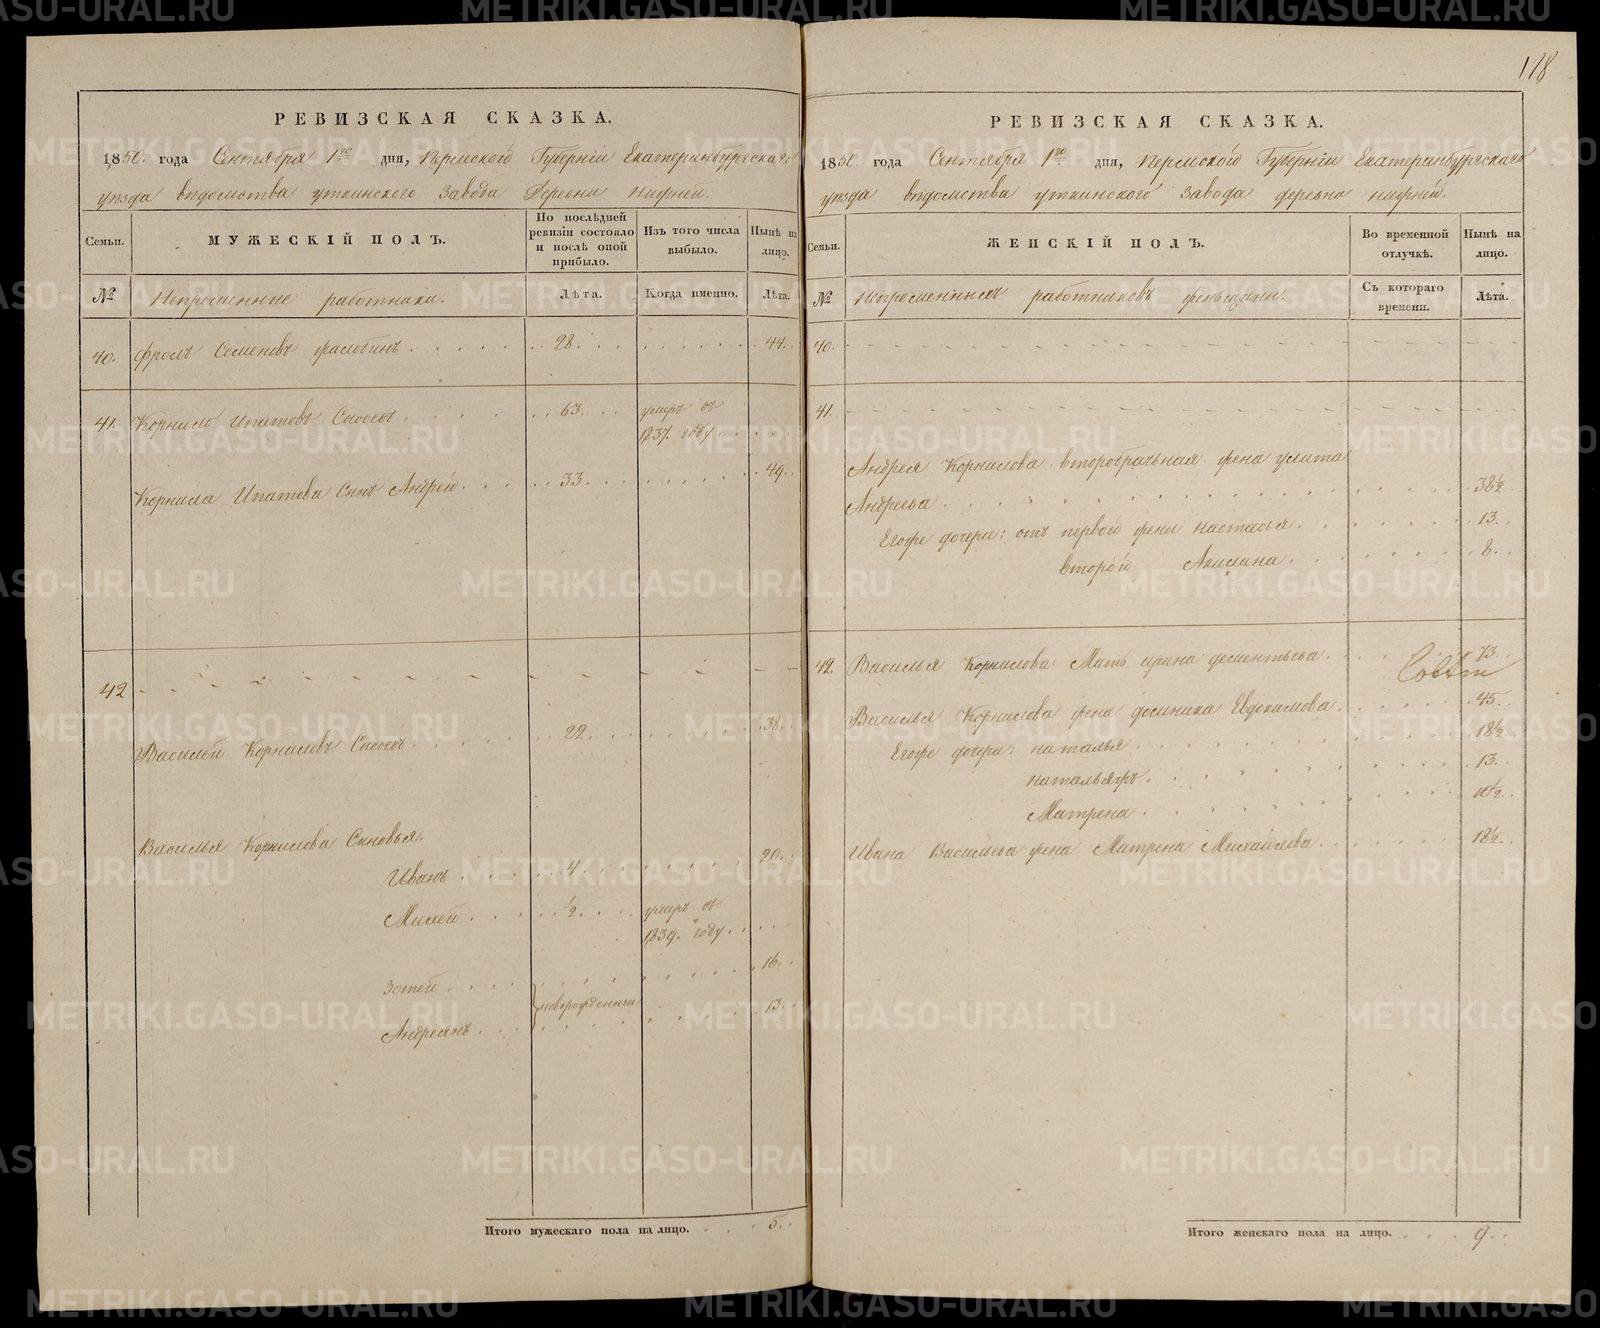 118
РЕВИЗСКАЯ СКАЗКА.
1850. года Сентября 1го дня, Пермской Губернiи Екатеринбургскаго
уезда ведомства уткинского Завода Деревни нижней.
Семьи.
МУЖЕСКIЙ ПОЛЪ.
По последней ревизiи состояло и после оной прибыло.
Изъ того числа выбыло.
Ныне на лицо.
№
Непременные работники.
Лета.
Когда именно.
Лета.
40. Фролъ Семеновъ 28. 44.
41. Корнило Ипатовъ Сысоевъ 63. умеръ въ
1837. году
Корнила Ипатова Сынъ Андрей 33. 49.
42
Василей Корниловъ Сысоевъ 22. 38.
Василья Корнилова Сыновья.
Иванъ 4 20.
Михей 1/2. умеръ въ
1839. году
Зотей 16.
новорожденные
Андреянъ 13.
Итого мужескаго пола на лицо. 5.
РЕВИЗСКАЯ СКАЗКА.
1850. года Сентября 1го дня, Пермской Губернiи Екатеринбургскаго
уезда ведомства уткинского Завода деревни нижней.
Семьи.
ЖЕНСКIЙ ПОЛЪ.
Во временной отлучкѣ.
Нынѣ на лицо.
№
Непременныхъ работниковъ
Съ котораго времени.
Лѣта.
40.
41.
Андрея Корнилова второбрачная жена улита
Андреева 38 1/2
Егоже дочери: отъ первой жены настасья 13.
второй Акилина 8.
42. Василья Корнилова Мать ирина дементьева 73.
Василья Корнилова жена домника Евдокимова 45.
Егоже дочери: наталья 18 1/2
13.
Матрена 10 1/2
Ивана Васильева жена Матрена Михайлова 18 1/2
Итого женскаго пола на лицо. 9.
METRIKI.GASO-URAL.RU